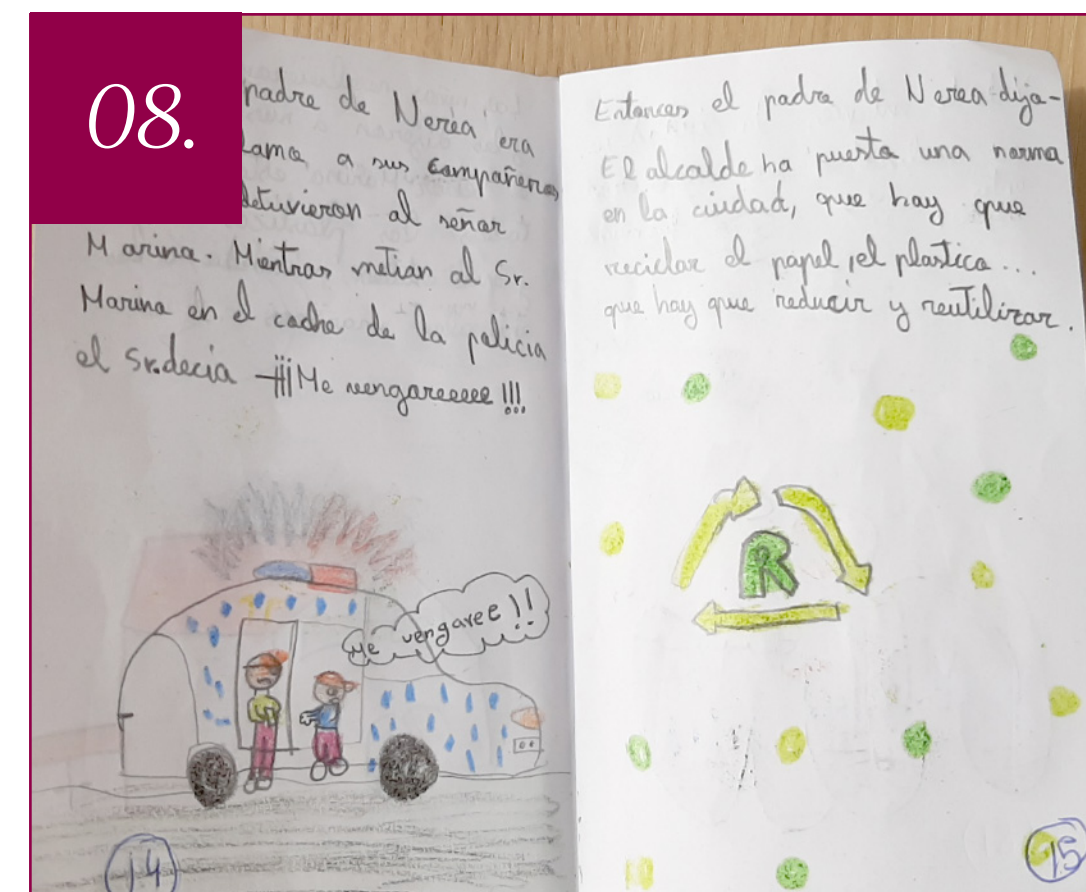 08.
padre de Nerea era
lamo a sus compañeros
detuvieron al señor
Marino. Mientras metian al Sr.
Marino en el coche de la policia
el Sr. decia -¡¡¡Me vengareeeee!!!
Me vengaree!!
14
Entonces el padre de Nerea dijo-
El alcalde ha puesto una norma
en la ciudad, que hay que
reciclar el papel, el plastico...
que hay que reducir y reutilizar.
R
15